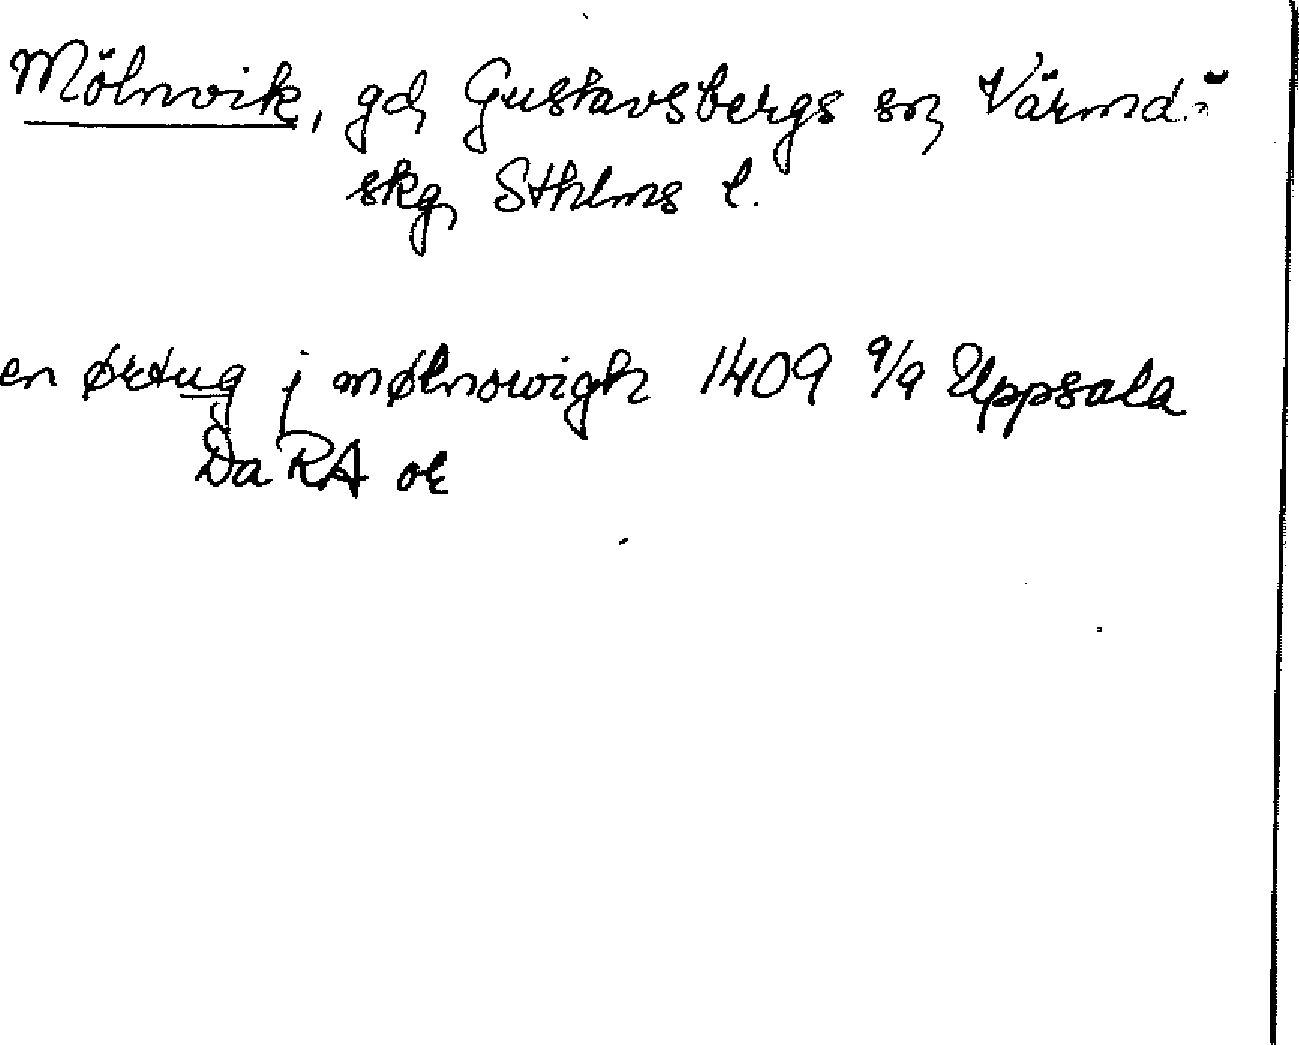 Mölnvik, gd, Gustavsbergs sn, Värmdö
skg, Sthlms l.
en ørtug j mølnowigh 1409 9/9 Uppsala
Da RA or